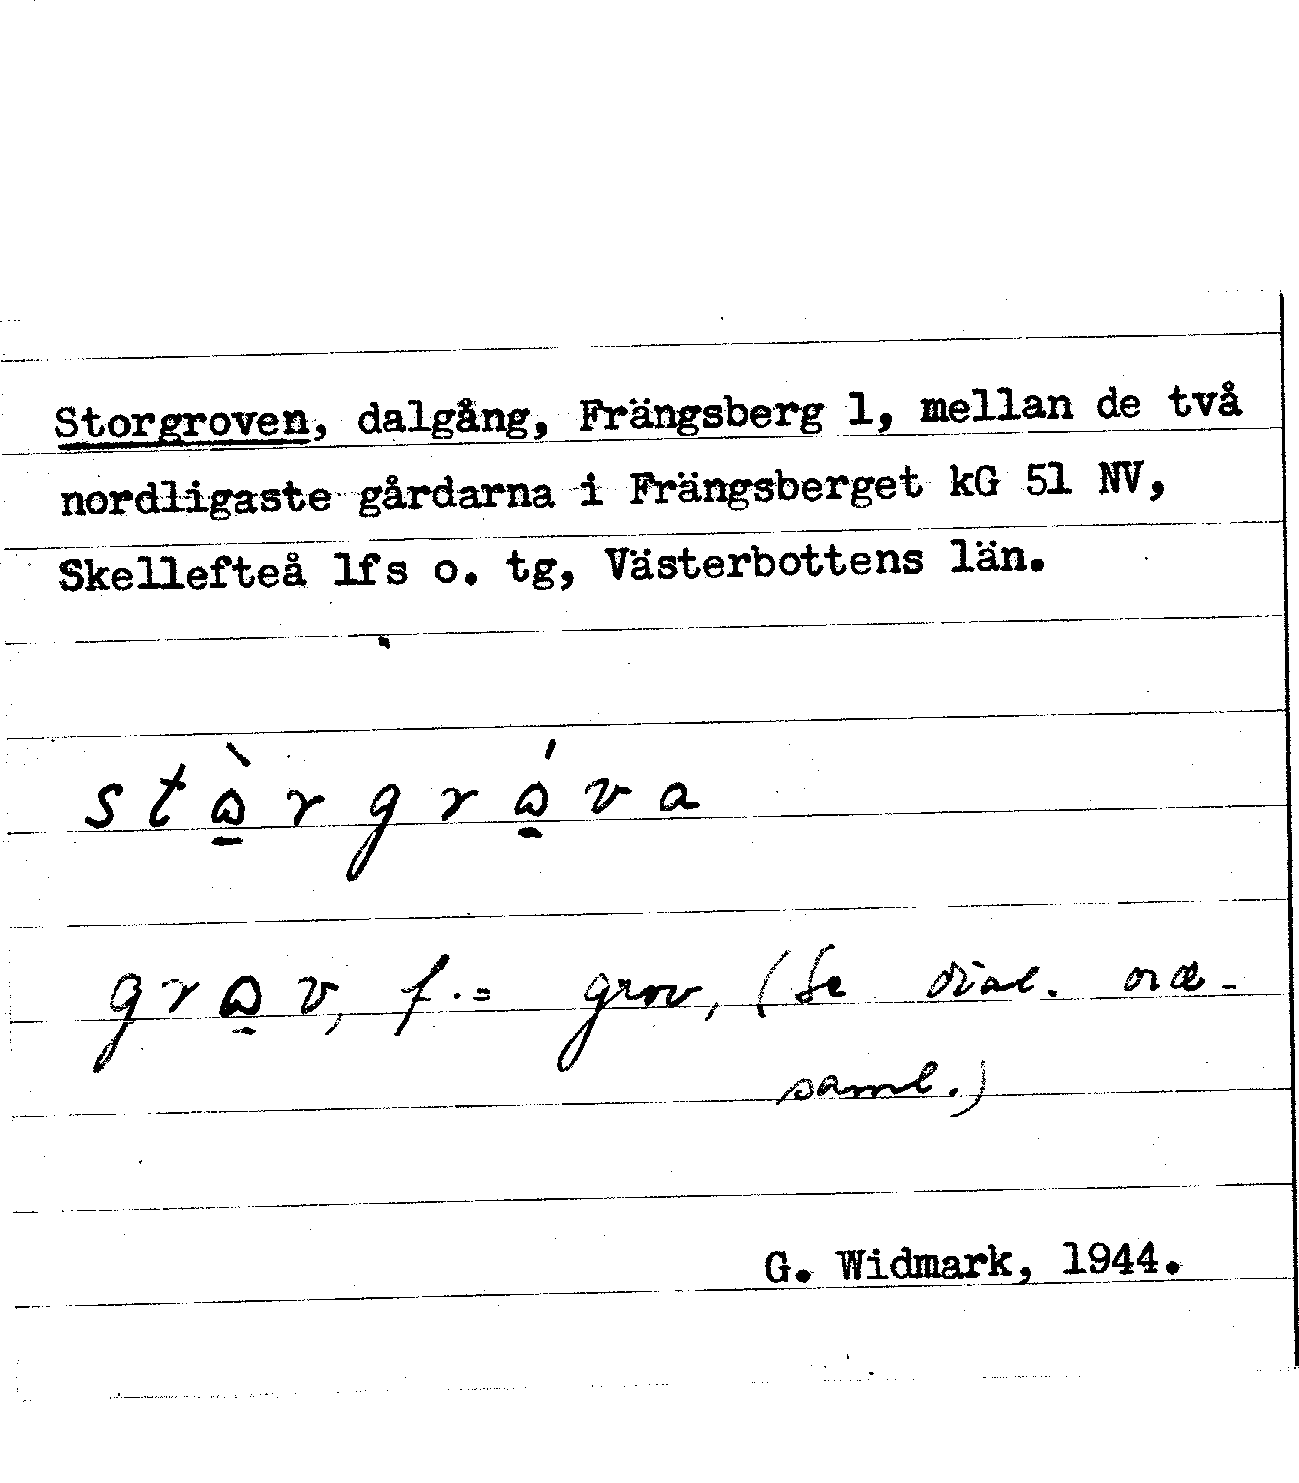 Storgroven, dalgång, Frängsberg 1, mellan de två
nordligaste gårdarna i Frängsberget kG 51 NV,
Skellefteå lfs o. tg, Västerbottens län.
stɷ̠̀rgrɷ̠́va
grɷ̠v, f. = grov, (Se dial. ord-
saml.)
G. Widmark, 1944.